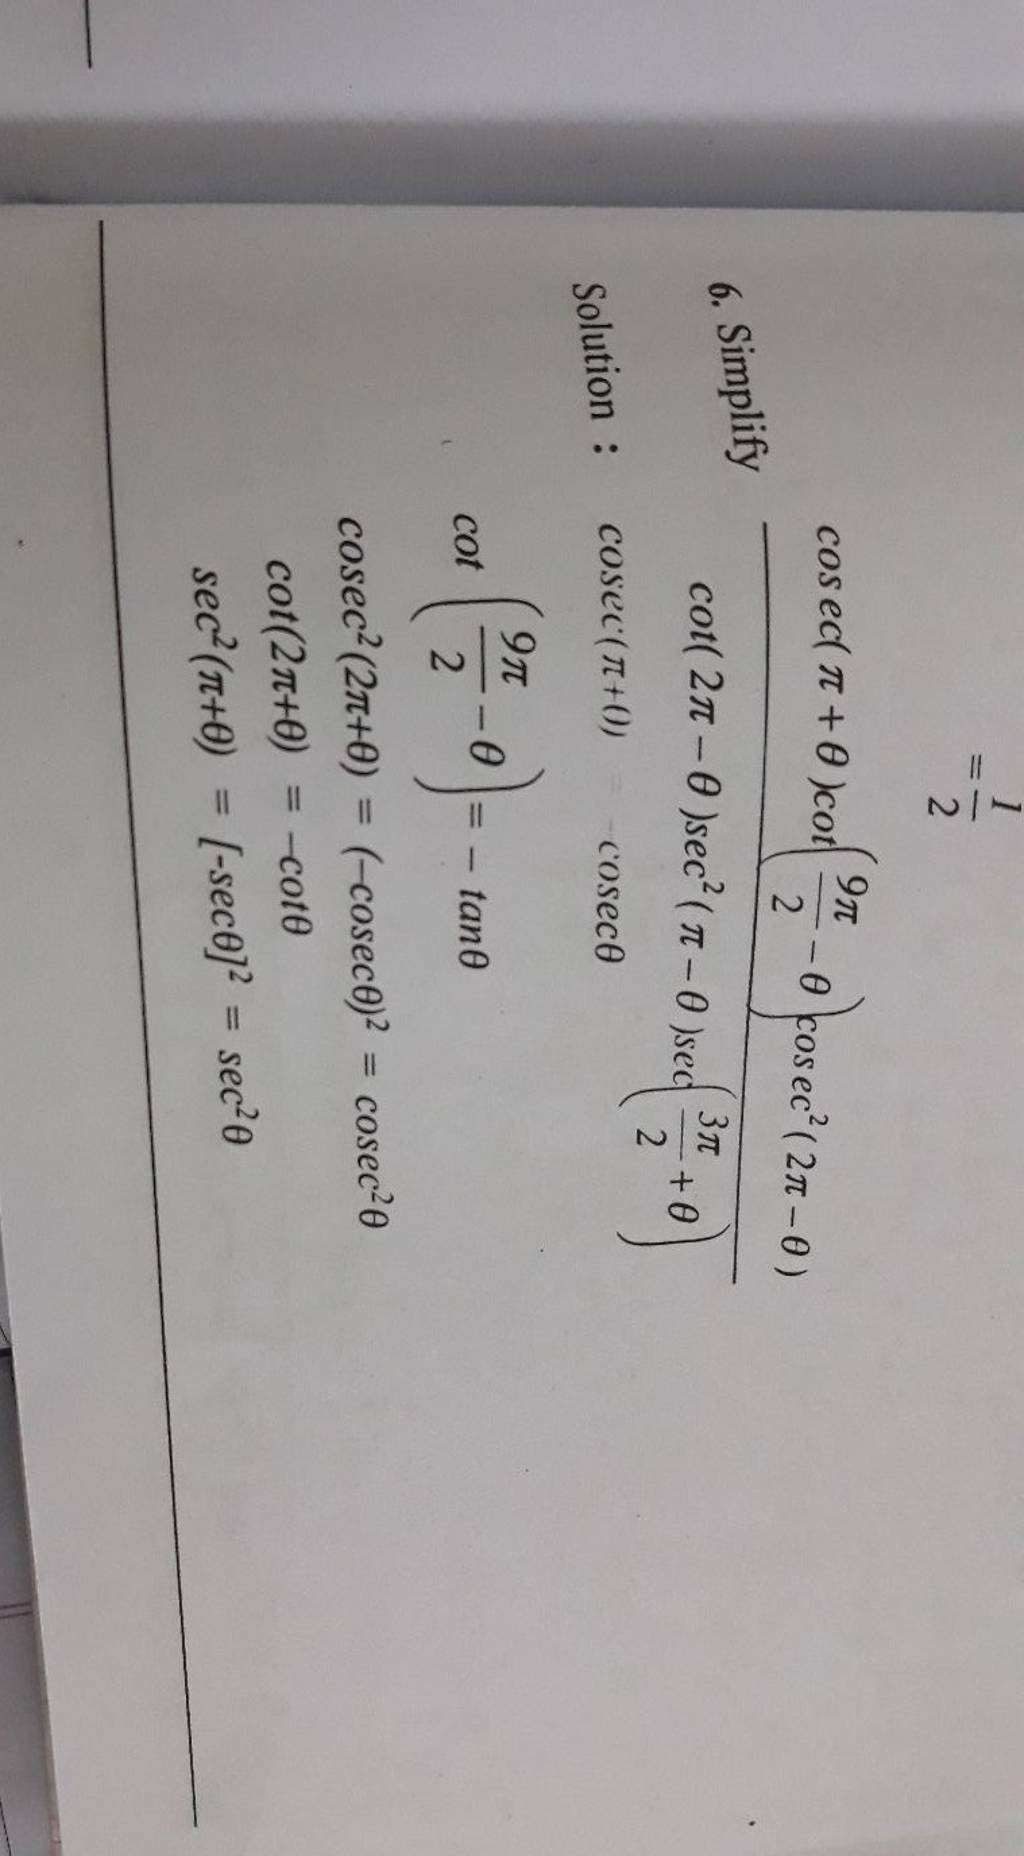 = 1/2
6. Simplify cosec(π + θ)cot(9π/2 − θ)cosec²(2π − θ) / cot(2π − θ)sec²(π − θ)sec(3π/2 + θ)
Solution : cosec(π+θ) = -cosecθ
cot(9π/2 − θ) = − tanθ
cosec²(2π+θ) = (−cosecθ)² = cosec²θ
cot(2π+θ) = −cotθ
sec²(π+θ) = [-secθ]² = sec²θ